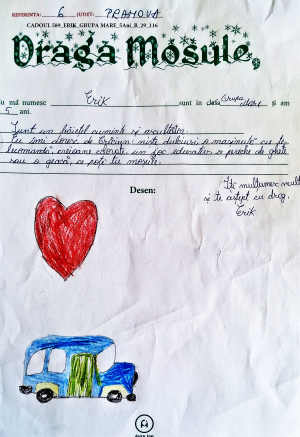 REFERINTA: 6 JUDET: PRAHOVA
CADOUL 589_ERIK_GRUPA MARE_5Ani_B_29_116
Dragă Moșule,
Eu mă numesc Erik sunt în clasa Grupa Mare și am
5 ani.
Sunt un băiețel cuminte și ascultător.
Eu îmi doresc de Crăciun: niște dulciuri o mașinuță cu te-
lecomandă, creioane colorate, un joc educativ, o pereche de ghete
sau o geacă, ce poți tu moșule.
Desen:
Îți mulțumesc mult
și te aștept cu drag.
Erik